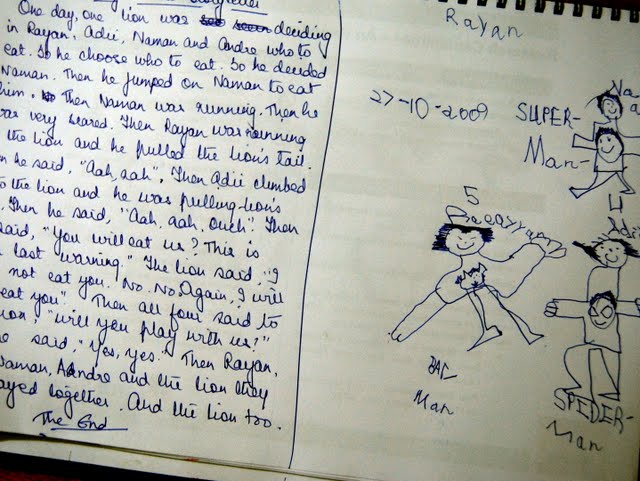 storyteller
One day, one lion was deciding
in Rayan, Adii, Naman and Andre who to
eat. So he choose who to eat. So he decided
Naman. Then he jumped on Naman to eat
him. Then Naman was running. Then he
was very scared. Then Rayan was running
the lion and he pulled the lion's tail.
he said, "Aah, aah". Then Adii climbed
to the lion and he was pulling lion's
Then he said, "Aah, aah, ouch"! Then
said, "You will eat us? This is
last warning." The lion said, "I
not eat you. No. No. Again, I will
eat you". Then all four said to
"will you play with us?"
said, "Yes, yes." Then Rayan,
Naman, Andre and the lion they
played together. And the lion too.
The End
Rayan
27-10-2009
SUPER-
Man-
5
4
BAT
Man
SPIDER-
Man